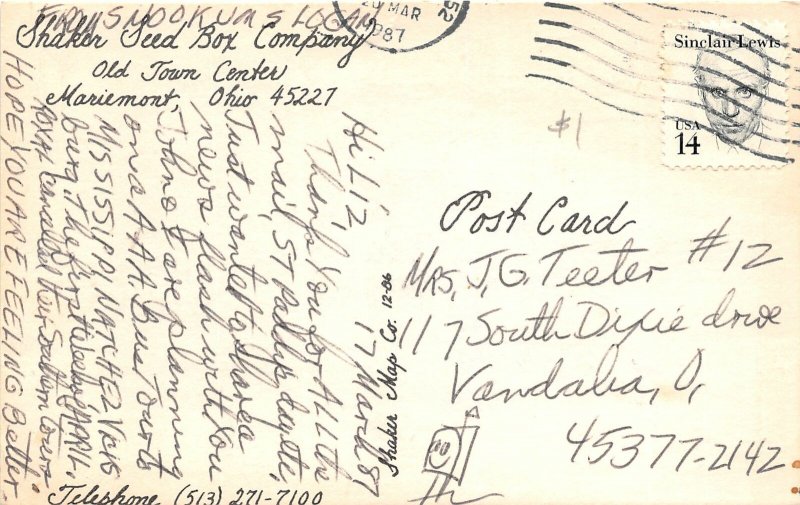 FROM SNOOKUMS LOGAN
Shaker Seed Box Company
Old Town Center
Mariemont, Ohio 45227
MAR
1987
52
Sinclair Lewis
USA
14
$1
Post Card
Mrs, J, G. Teeter #12
117 South Dixie drive
Vandalia, O,
45377-2142
Shaker Map Co. 12-06
17 March 87
Hi Liz,
Thank You for All the
mail, ST Patty's day etc,
Just wanted to share a
news flash with You
John & I are planning
on a AAA. Bus Tour to
MISSISSIPPI NATCHEZ Vicks
burg, the first week of APRIL,
cancelled their Southern tours
HOPE YOU ARE FEELING Better
Telephone (513) 271-7100